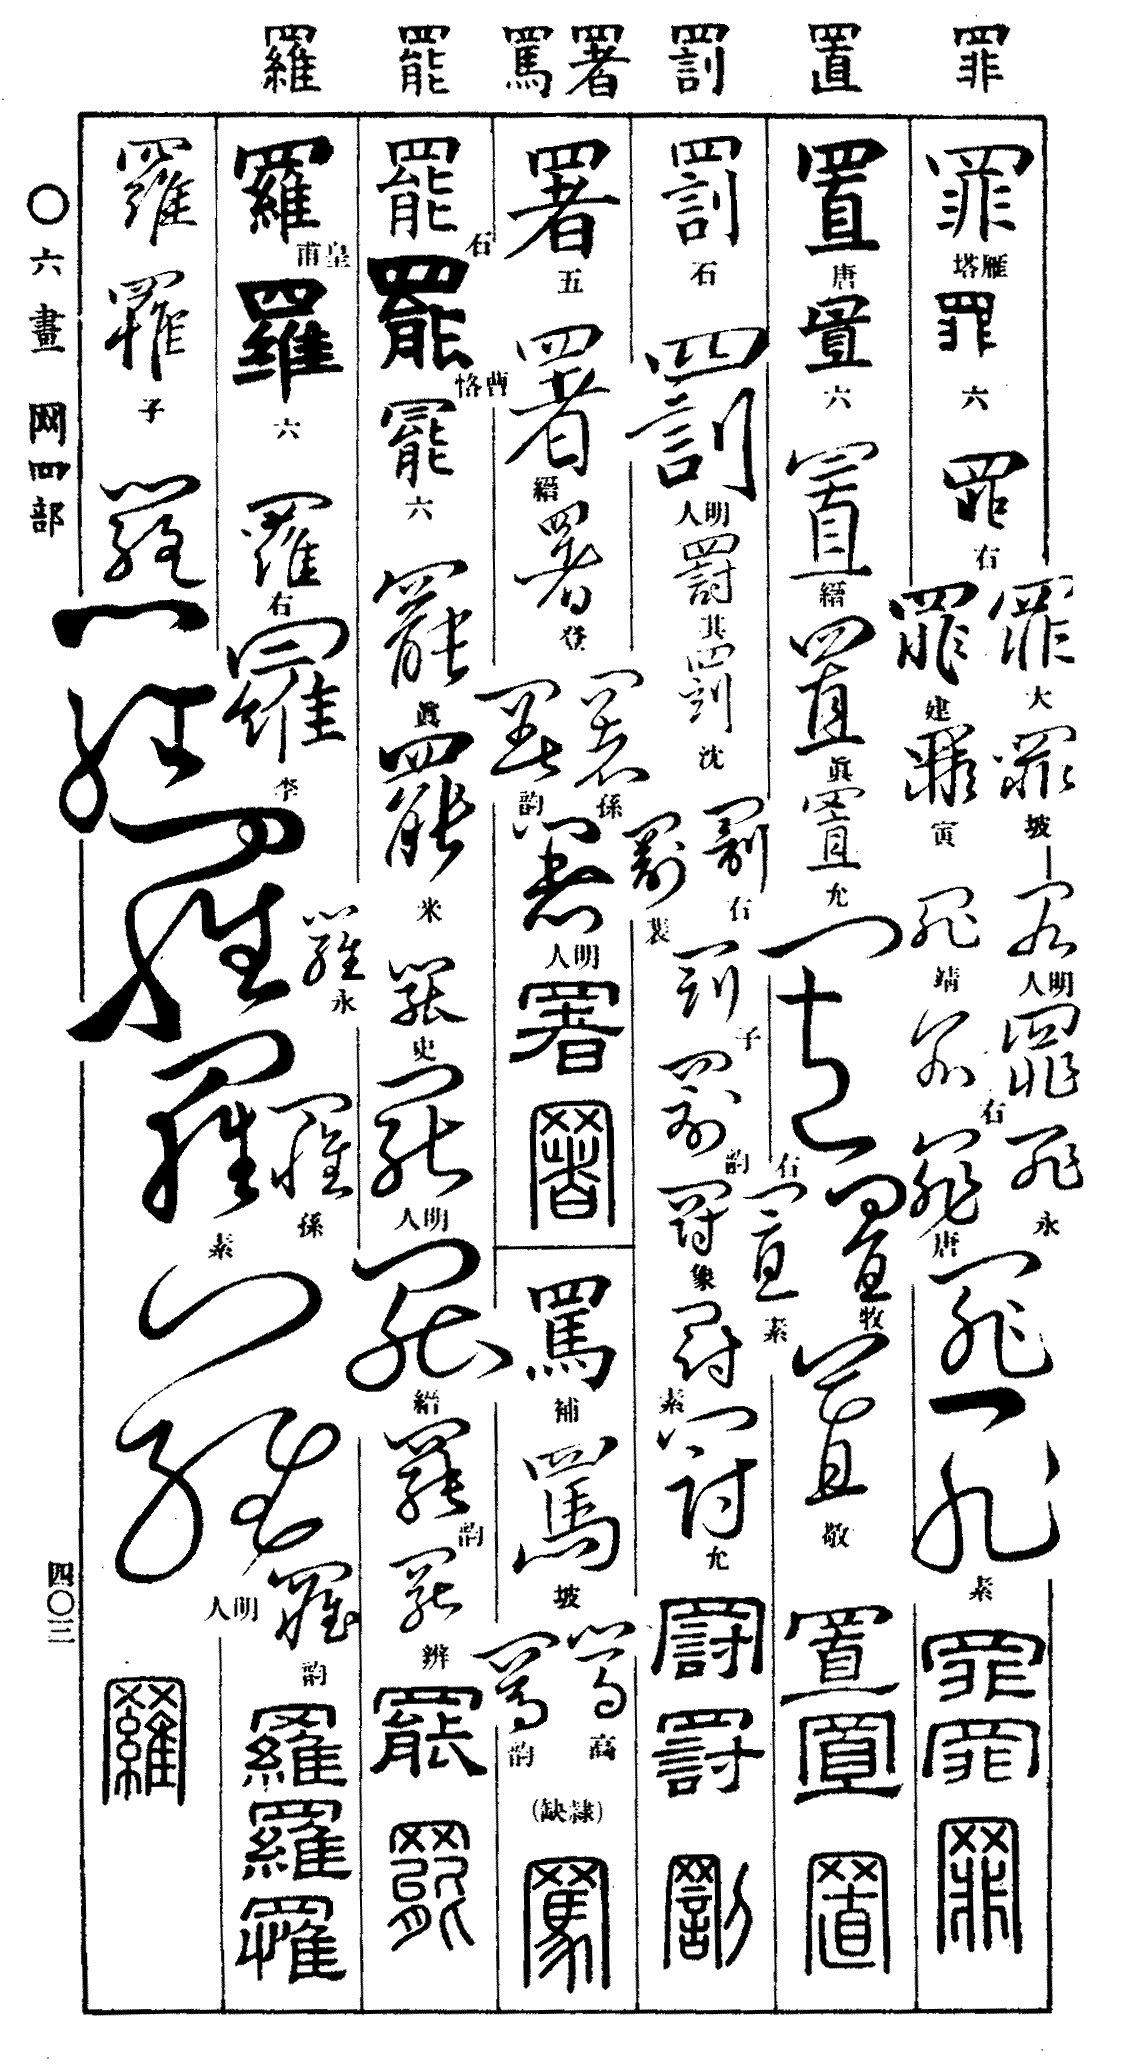 罪 置 罰 署 罵 罷 羅
罪
雁塔
罪
六
罪
右
罪
大
罪
建
罪
坡
罪
寅
罪
明人
罪
靖
罪
右
罪
罪
永
罪
唐
罪
罪
素
罪
罪
罪
置
唐
置
六
置
縉
置
眞
置
允
置
右
置
牧
置
素
置
敬
置
置
置
罰
石
罰
明人
罰
其
罰
沈
罰
右
罰
裴
罰
子
罰
韵
罰
象
罰
素
罰
允
罰
罰
罰
署
五
署
縉
署
登
署
孫
署
韵
署
明人
署
署
罵
補
罵
坡
罵
高
罵
韵
(隸缺)
罵
罷
石
罷
曹恪
罷
六
罷
眞
罷
米
罷
史
罷
明人
罷
縉
罷
韵
罷
辨
罷
罷
羅
皇甫
羅
六
羅
右
羅
李
羅
永
羅
孫
羅
韵
羅
羅
羅
羅
羅
子
羅
羅
羅
羅
素
羅
明人
羅
〇六畫 网罒部
四〇三